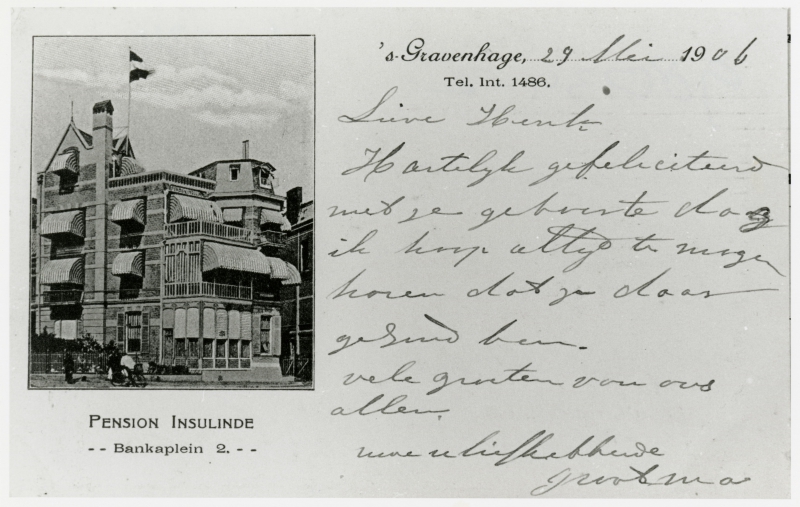 's-Gravenhage, 29 Mei 1906
Tel. Int. 1486.
Lieve Henk
Hartelyk gefeliciteerd
met je geboorte dag
ik hoop altyd te mogen
horen dat je daar
gezond ben.
vele groeten van ons
allen
uwe u liefhebbende
grootma
PENSION INSULINDE
-- Bankaplein 2. --